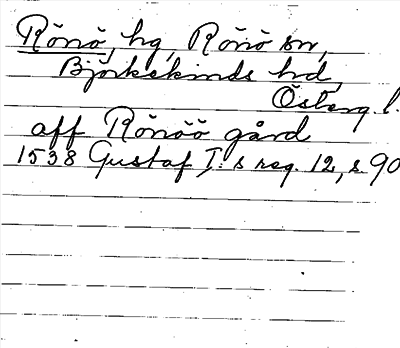 Rönö, hg, Rönö sn,
Björkekinds hd,
Österg. l.
aff Rönöö gård
1538 Gustaf I:s reg. 12, s. 90